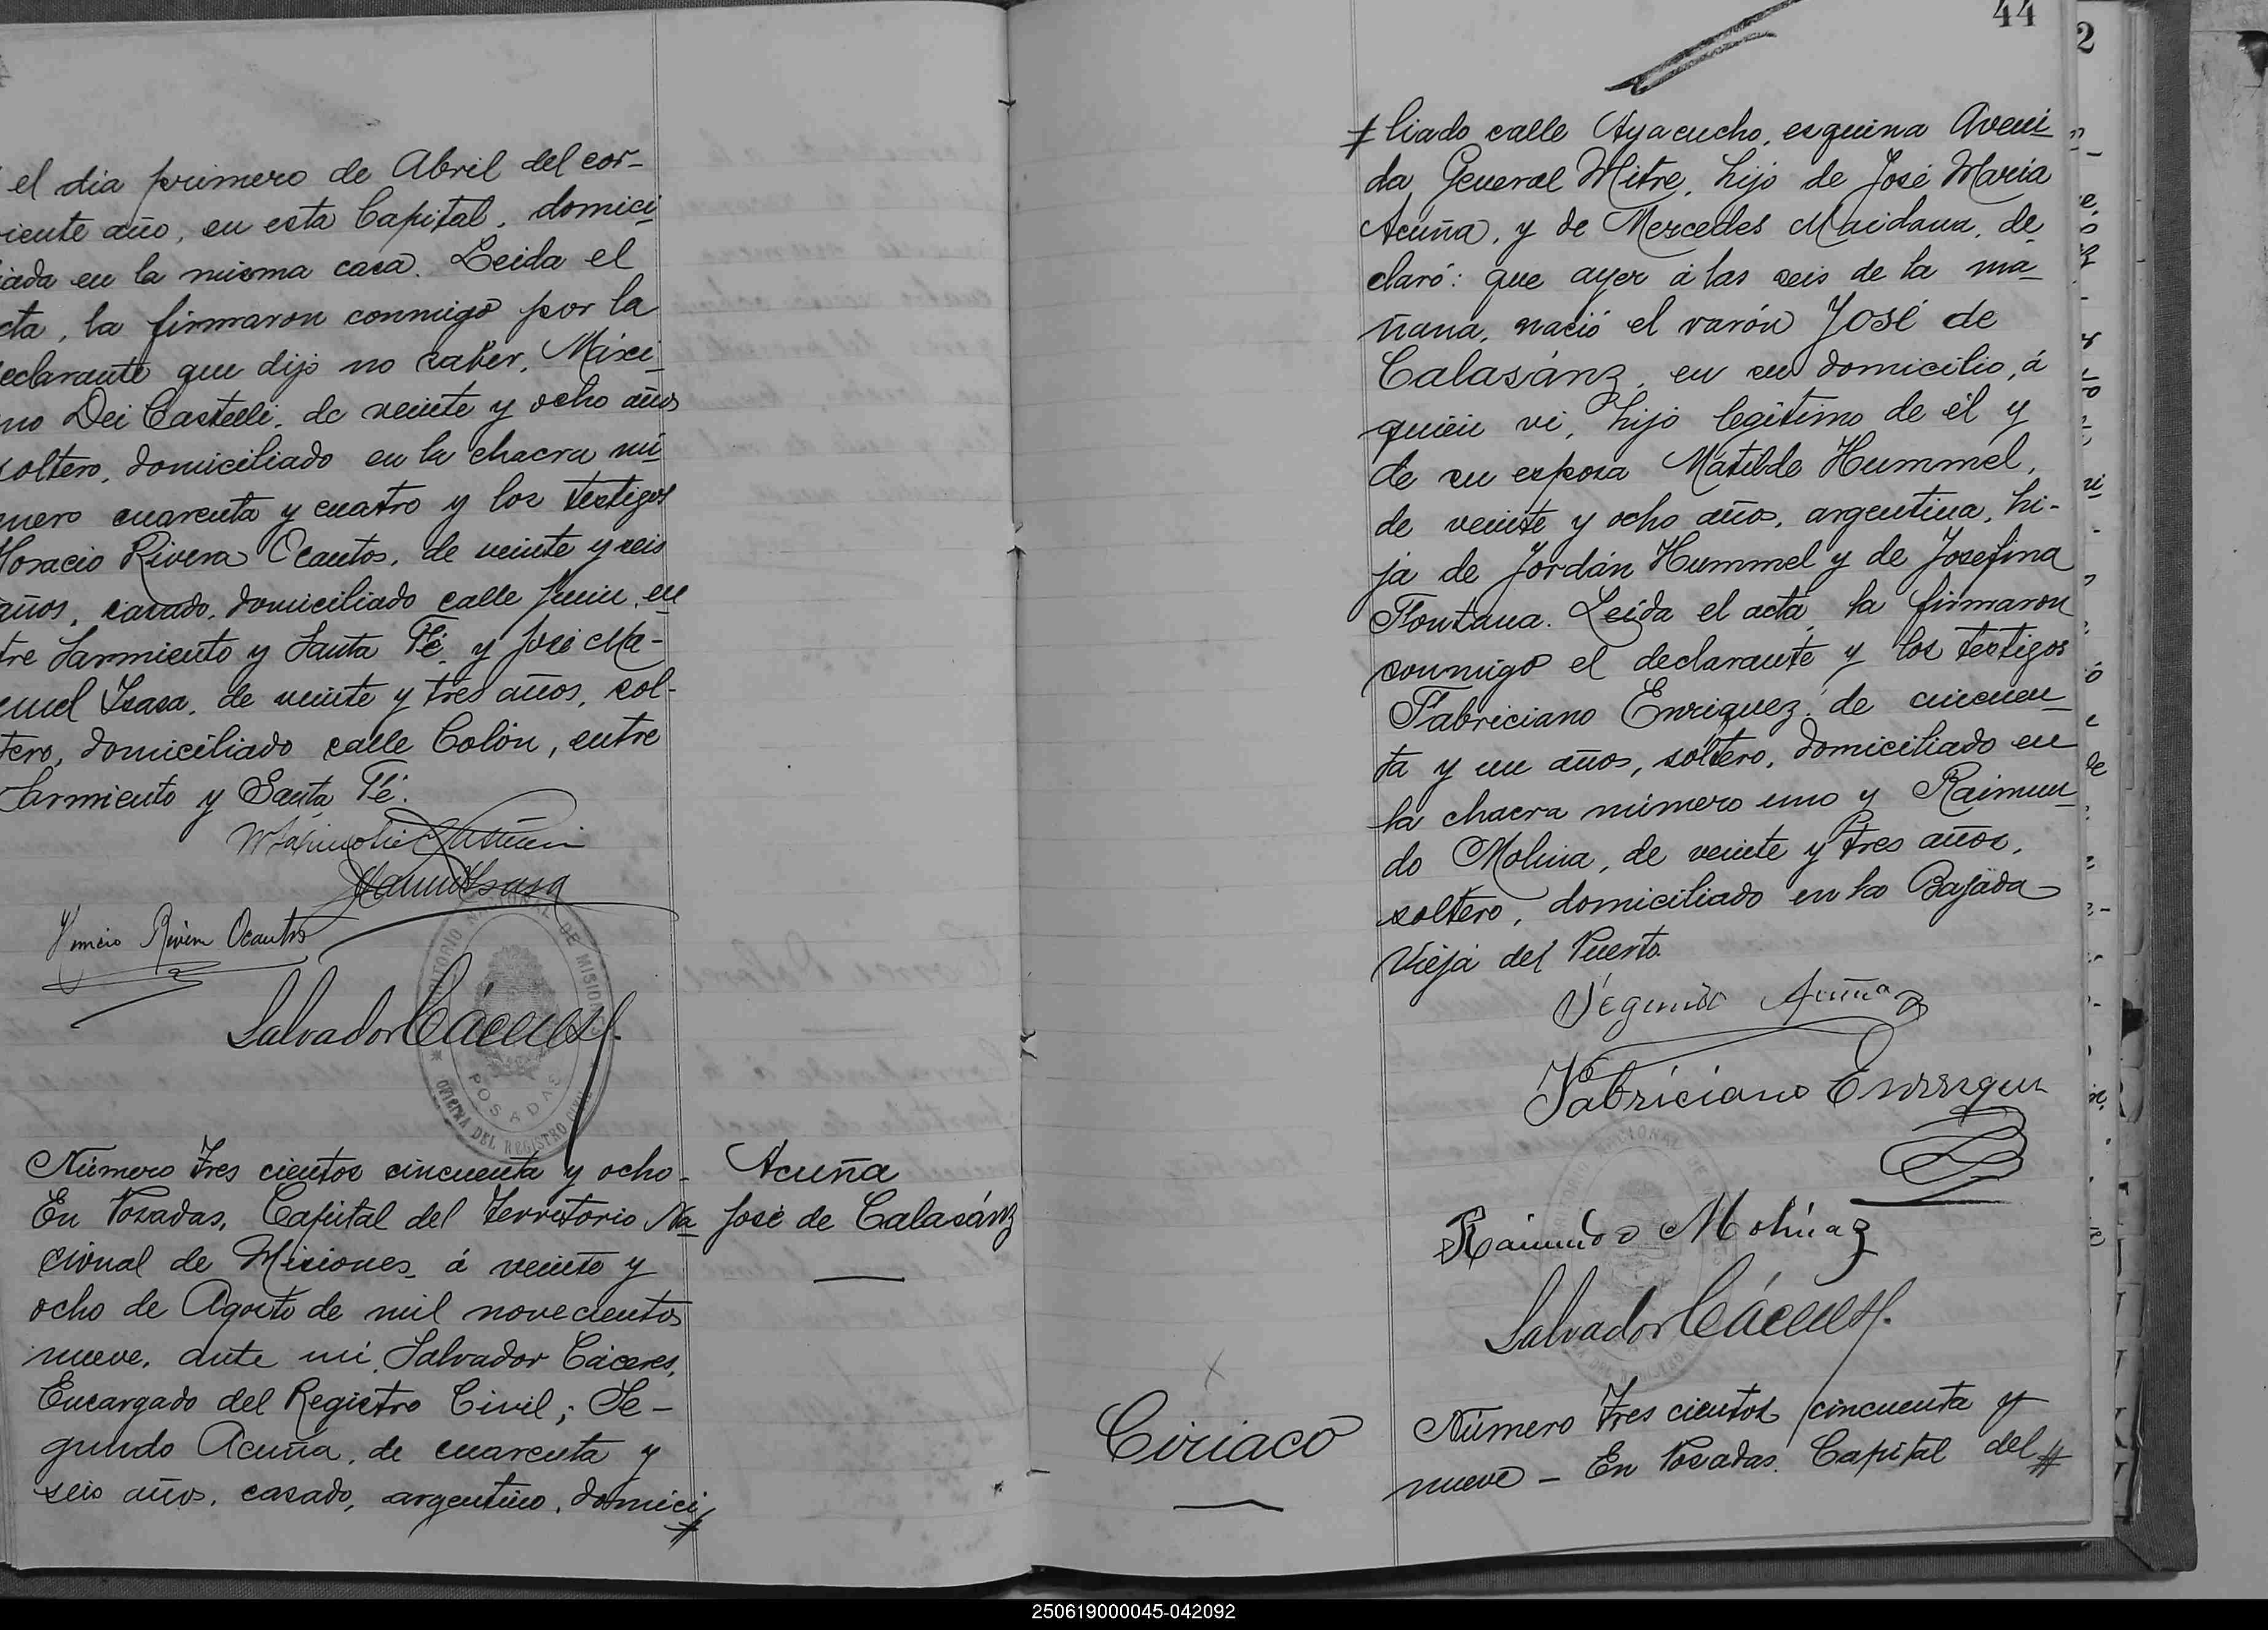 el dia primero de Abril del cor-
riente año, en esta Capital, domici
iada en la misma casa. Leida el
cta, la firmaron conmigo por la
eclarante que dijo no saber, Máxi
mo Dei Castelli, de veinte y ocho años
soltero, domiciliado en la chacra nú
mero cuarenta y cuatro y los testigos
Horacio Rivera Ocantos, de veinte y seis
años, casado, domiciliado calle Junin, en
tre Sarmiento y Santa Fé, y José Ma-
nuel Isasa, de veinte y tres años, sol-
tero, domiciliado calle Colón, entre
Sarmiento y Santa Fé.
Horacio Rivera Ocantos
Salvador Cáceres
TERRITORIO NACIONAL DE MISIONES
POSADAS
OFICINA DEL REGISTRO CIVIL
Número Tres cientos cincuenta y ocho-
En Posadas, Capital del Territorio Na
cional de Misiones, á veinte y
ocho de Agosto de mil novecientos
nueve, ante mí, Salvador Cáceres,
Encargado del Registro Civil; Se-
gundo Acuña, de cuarenta y
seis años, casado, argentino, domici
Acuña
José de Calasánz
44
2
liado calle Ayacucho, esquina Aveni
da General Mitre, hijo de José Maria
Acuña, y de Mercedes Maidana, de
claró: que ayer á las seis de la ma
ñana, nació el varón José de
Calasánz, en su domicilio, á
quien vi, hijo legítimo de él y
de su esposa Matilde Hummel,
de veinte y ocho años, argentina, hi-
ja de Jordán Hummel y de Josefina
Fontana. Leida el acta, la firmaron
conmigo el declarante y los testigos
Fabriciano Enriquez, de cincuen
ta y un años, soltero, domiciliado en
la chacra número uno y Raimun
do Molina, de veinte y tres años,
soltero, domiciliado en la Bajada
Vieja del Puerto.
Segundo Acuña
Fabriciano Enrriquez
Raimundo Molina
Salvador Cáceres
Ciriaco
Número Tres cientos cincuenta y
nueve - En Posadas, Capital del
250619000045-042092